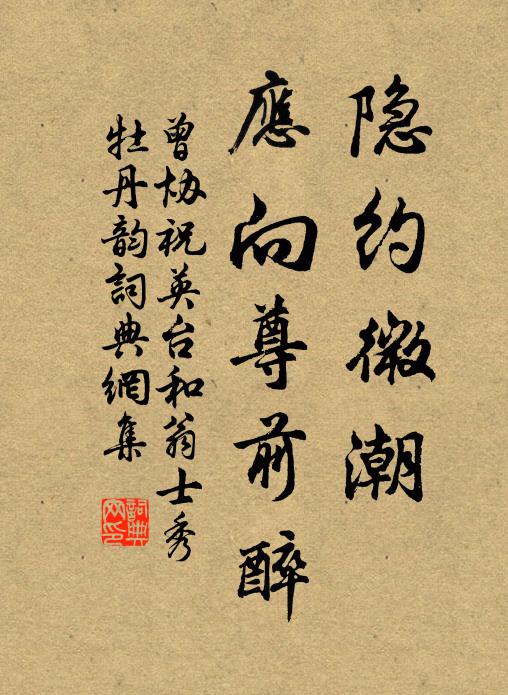 隐约微潮
應向尊前醉
曾协祝英台和翁士秀
牡丹韵詞典網集
詞典网印